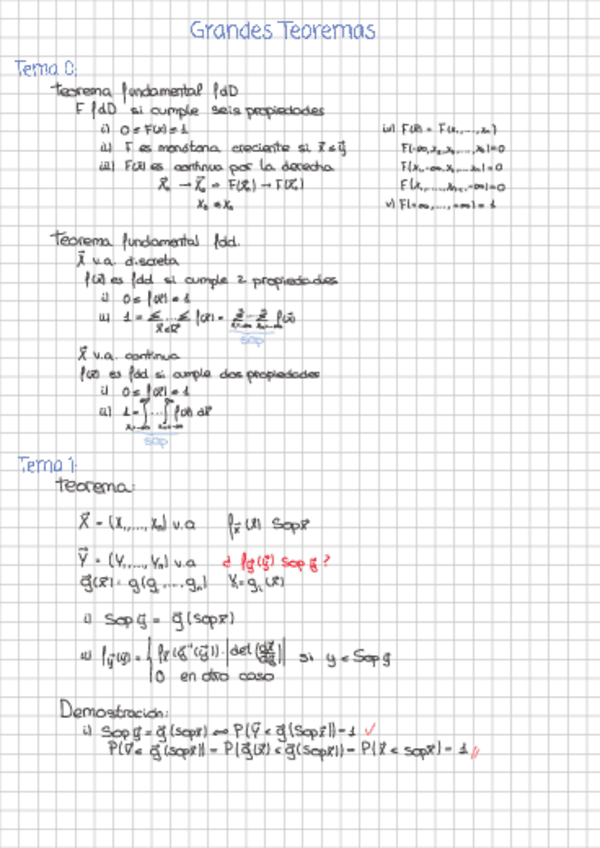 Grandes Teoremas
Tema 0:
Teorema fundamental fdD
F fdD si cumple seis propiedades
i) 0 ≤ F(x) ≤ 1
ii) F es monótona creciente si x⃗ ≤ y⃗
iii) F(x) es continua por la derecha
iv) F(x⃗) = F(x₁,...,xₙ)
F(-∞,x₂,x₃,...,xₙ)=0
F(x₁,-∞,x₃,...,xₙ)=0
F(x₁,...,xₙ₋₁,-∞)=0
v) F(+∞,...,+∞) = 1
Teorema fundamental fdd.
X⃗ v.a. discreta
f(x⃗) es fdd si cumple 2 propiedades
i) 0 ≤ f(x⃗) ≤ 1
sop
X⃗ v.a. continua
f(x⃗) es fdd si cumple dos propiedades
i) 0 ≤ f(x⃗) ≤ 1
ii) 1 = ∫...∫ f(x⃗) dx⃗
sop
Tema 1:
Teorema:
X⃗ = (X₁,...,Xₙ) v.a f_x⃗(x⃗) Sop x⃗
Y⃗ = (Y₁,...,Yₙ) v.a ¿ f_y⃗(y⃗) Sop y⃗ ?
g⃗(x⃗) = g(g₁,...,gₙ) Yᵢ = gᵢ(x⃗)
i) Sop y⃗ = g⃗(sop x⃗)
ii) f_y⃗(y⃗) = { f_x⃗(g⃗⁻¹(y⃗)) · |det(dx⃗/dy⃗)| si y ∈ Sop y⃗
0 en otro caso
Demostración:
i) Sop y⃗ = g⃗(sop x⃗) ⇔ P(Y⃗ ∈ g⃗(Sop x⃗)) = 1 ✓
P(Y⃗ ∈ g⃗(sop x⃗)) = P(g⃗(x⃗) ∈ g⃗(sop x⃗)) = P(X⃗ ∈ sop x⃗) = 1 //